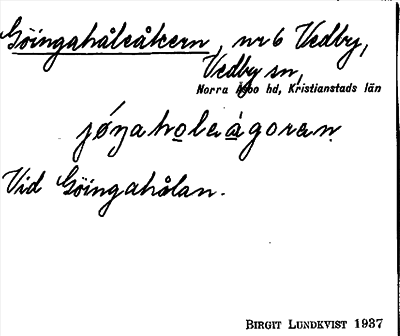 Göingahåleåkern, nr 6 Vedby,
Vedby sn,
Norra Åsbo hd, Kristianstads län
Vid Göingahålan.
BIRGIT LUNDKVIST 1937